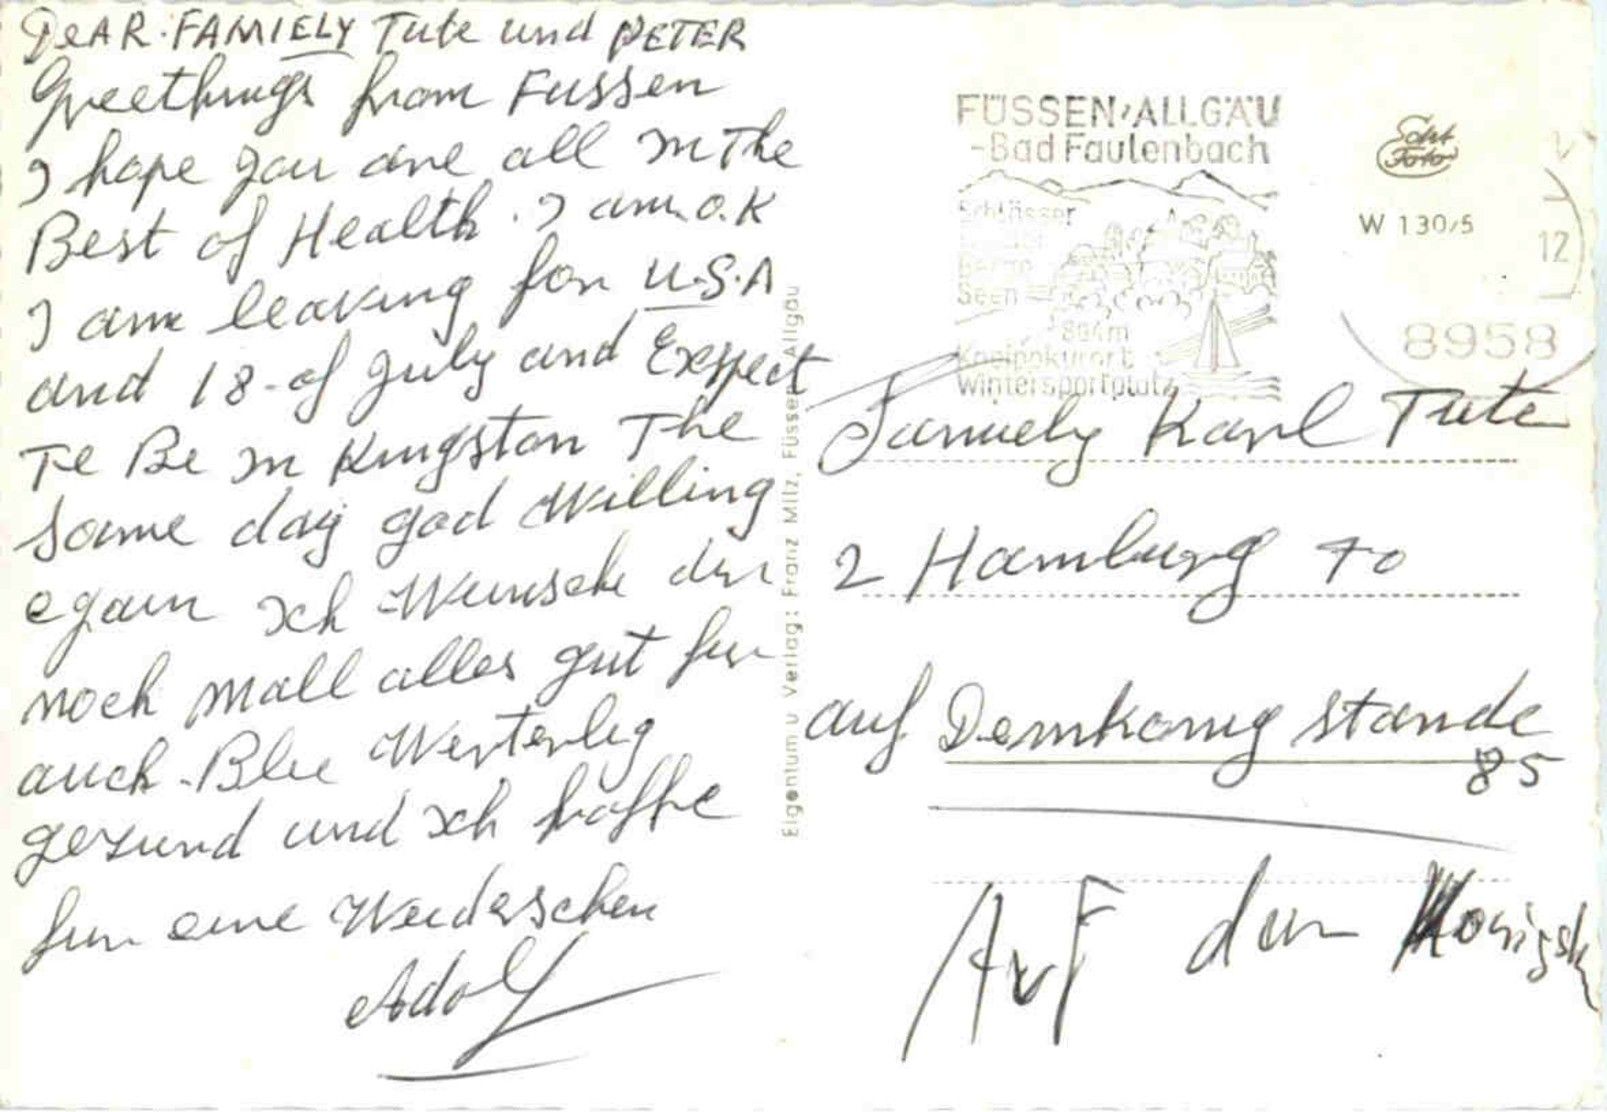 DeAR. FAMIELY Tute und PETER
Greethings from Fussen
I hope you are all in The
Best of Health. I am. O.K
I am leaving for U.S.A
and 18-of July and Expect
Te Be in Kingston The
Same day god Willing
egain Ich Wunsche dir
noch mall alles gut fur
auch. Blee Werterlig
gesund und Ich hoffe
fur eine Weiderschen
Adolf
Eigentum u Verlag: Franz Milz, Füssen Allgäu
FÜSSEN/ALLGÄU
-Bad Faulenbach
Schlösser
Berge
Seen
804m
Kneippkurort
Wintersportplatz
Echt
Foto
W 130/5
12
8958
Famiely Karl Tute
2 Hamburg 70
auf Demkonig stande
85
AuF den